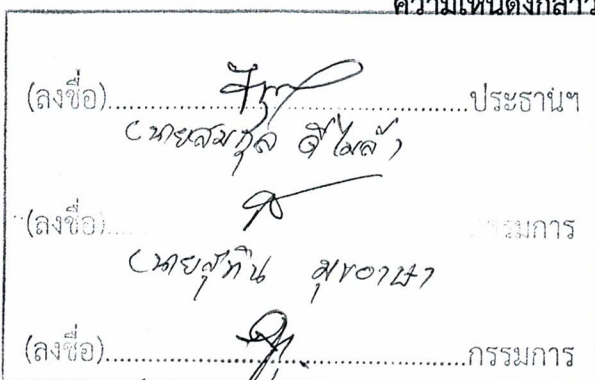 ความเห็นดังกล่าว
(ลงชื่อ)..........................................ประธานฯ
(นายสมกุล
(ลงชื่อ)..........................................กรรมการ
(นายสุทิน มุขอาษา
(ลงชื่อ)..........................................กรรมการ